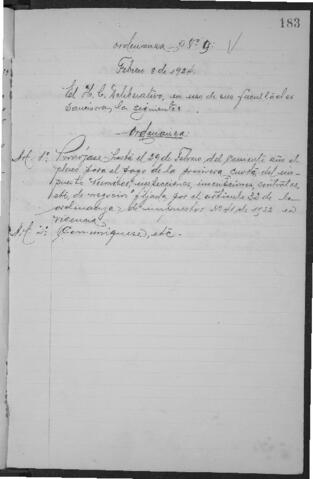 183
Ordenanza Nº 9: V
Febrero 8 de 1924.
El H. C. Deliberativo, en uso de sus facultades
sanciona, la siguiente:
Ordenanza
Art. 1º: Prorrógase hasta el 29 de Febrero, del presente año el
plazo para el pago de la primera cuota del im-
puesto "Derechos, inspecciones, contralor,
etc, de negocios" fijada por el artículo 22 de la
ordenanza de impuestos Nº 41 de 1922 en
vigencia.
Art. 2º: Comuníquese, etc.